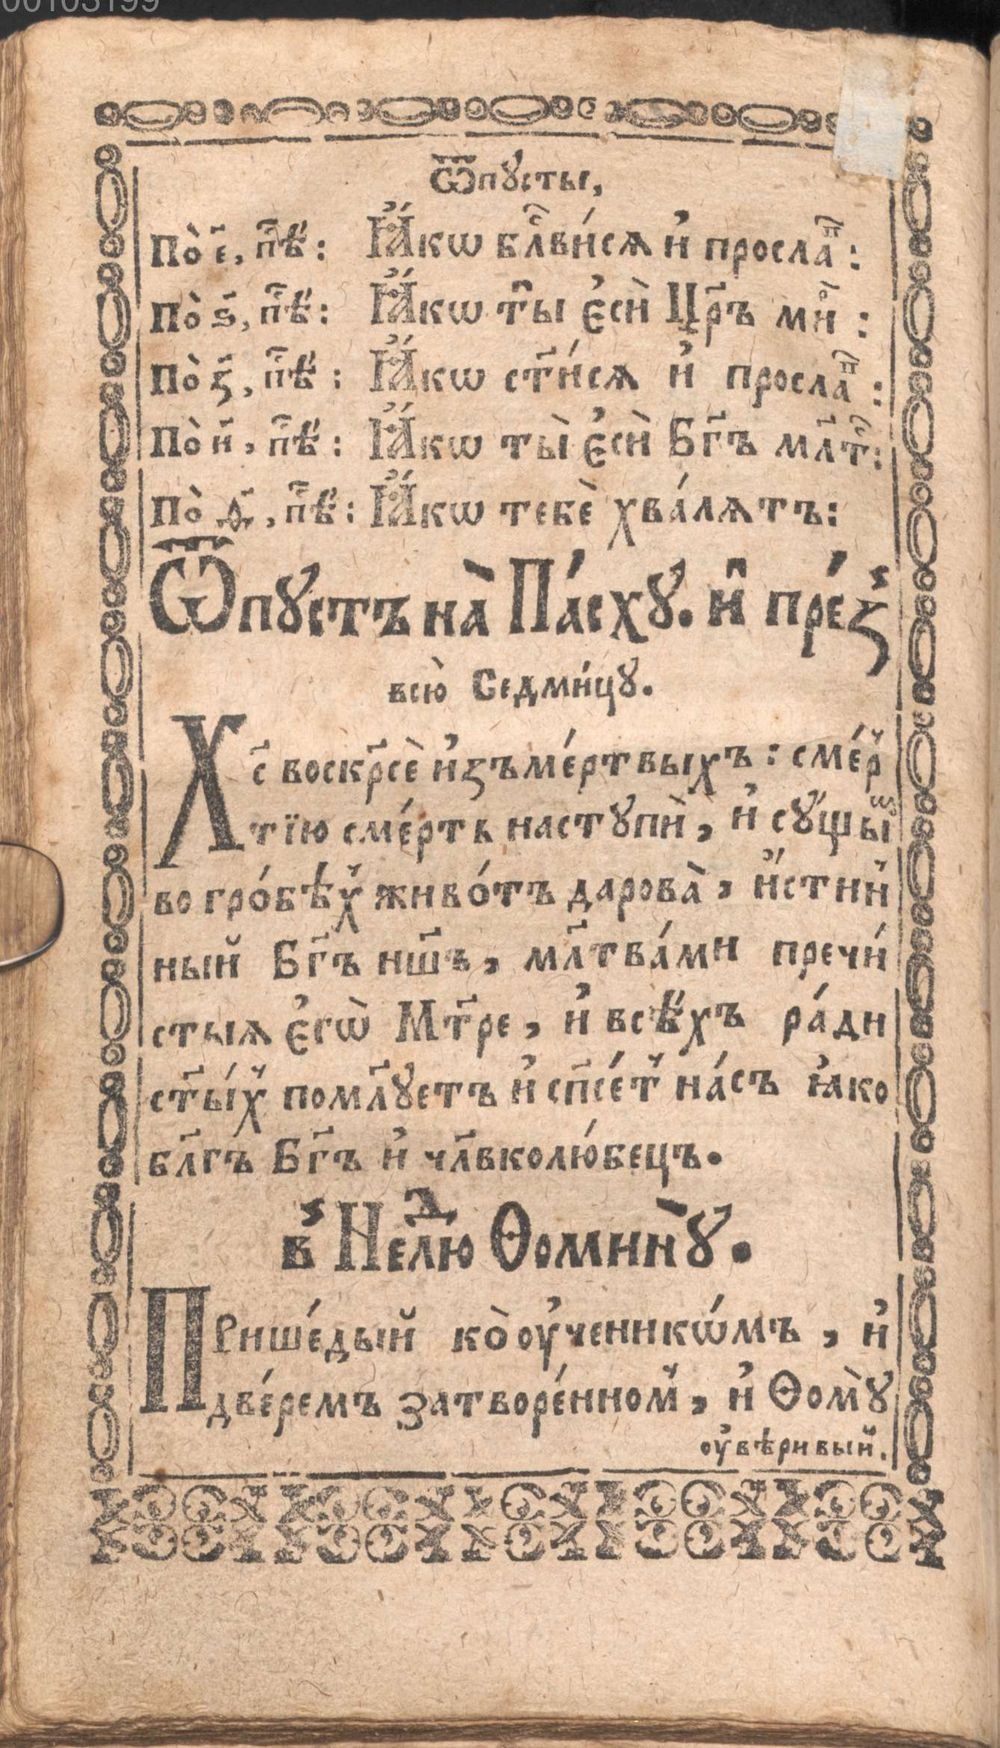 00103199
Ѿпꙋсты,
По̀ є҃, пѣ҃: Ꙗ҆́кѡ бл҃ви́сѧ и҆ просла̑п:
По̀ ѕ҃, пѣ҃: Ꙗ҆́кѡ ты̑ є҆сѝ Цр҃ъ мнⷬ҇:
По̀ з҃, пѣ҃: Ꙗ҆́кѡ ст҃и́сѧ и҆ прослаⷫ҇:
По̀ и҃, пѣ҃: Ꙗ҆́кѡ ты̀ є҆сѝ Бг҃ъ мл҃т:
По̀ ѳ҃, пѣ҃: Ꙗ҆́кѡ тебѐ хва́лѧтъ:
Ѿпꙋстъ на̀ Па́схꙋ. и҆̑ пре́з̾
всю̀ Седми́цꙋ.
Хс҃ воскр҃сѐ и҆зъме́ртвыхъ: сме́р̾
тїю сме́рть настꙋпѝ, и҆ сꙋ́щыⷨ
во гро́бѣх̾ живо́тъ дарова̀, и҆́стин
ный Бг҃ъ нш҃ъ, мл҃тва́ми пречи́
стыѧ є҆гѡ̀ Мт҃ре, и҆ всѣ́хъ ра́ди
ст҃ы́х̾ помл҃ꙋетъ и҆ сп҃се́т̾ на́съ ꙗ҆́ко
бл҃гъ Бг҃ъ и҆ чл҃вколю́бецъ.
в̾ Неⷣлю Ѳоминꙋ̀.
Прише́дый ко̀ оу҆ченикѡ́мъ, и҆
две́ремъ затворе́нном̾, и҆ Ѳомꙋ̀
оу҆вѣривый.